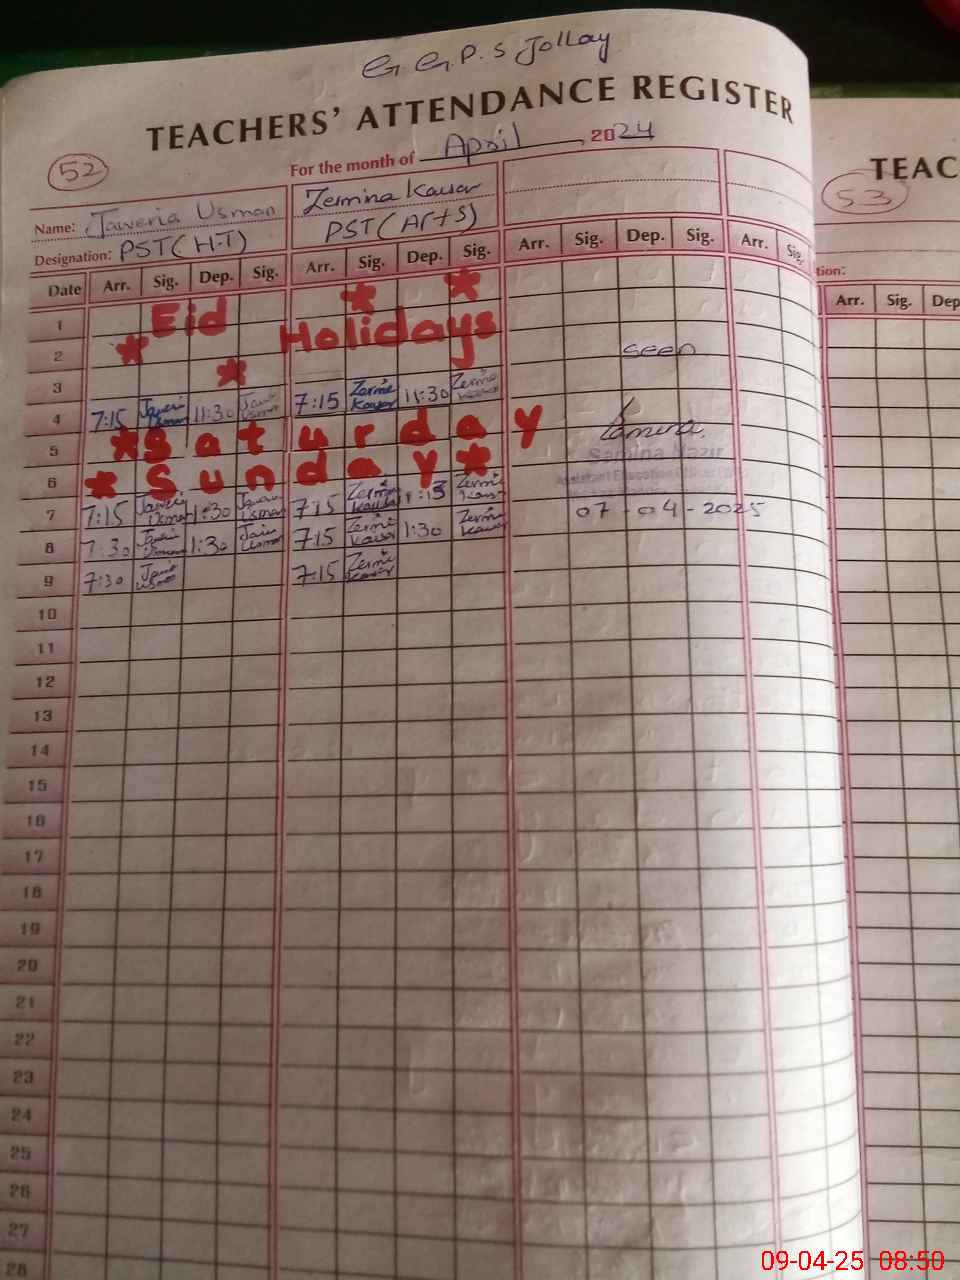 G G.P.S Jollay
TEACHERS' ATTENDANCE REGISTER
TEAC
52
For the month of April, 2024
53
Name: Jaweria Usman Zermina Kausar
Designation: PST(H.T) PST(Art+S)
tion:
Date Arr. Sig. Dep. Sig. Arr. Sig. Dep. Sig. Arr. Sig. Dep. Sig. Arr. Sig.
Arr. Sig. Dep
1 Eid Holidays
2 seen
3
4 7:15 Jaweria Usman 11:30 Jawi Usman 7:15 Zermi Kausar 11:30 Zermi Kausar
5 Saturday
Samina Nazir
6 Sunday
7 7:15 Jaweria Usman 1:30 Jaweria Usman 7:15 Zermi Kausar Zermi Kausar 07-04-2025
8 7:30 Jawi Usman 1:30 Jawi Usman 7:15 Zermi Kausar 1:30 Zermi Kausar
9 7:30 Jawi Usman 7:15 Zermi Kausar
10
11
12
13
14
15
16
17
18
19
20
21
22
23
24
25
26
27
28
09-04-25 08:50